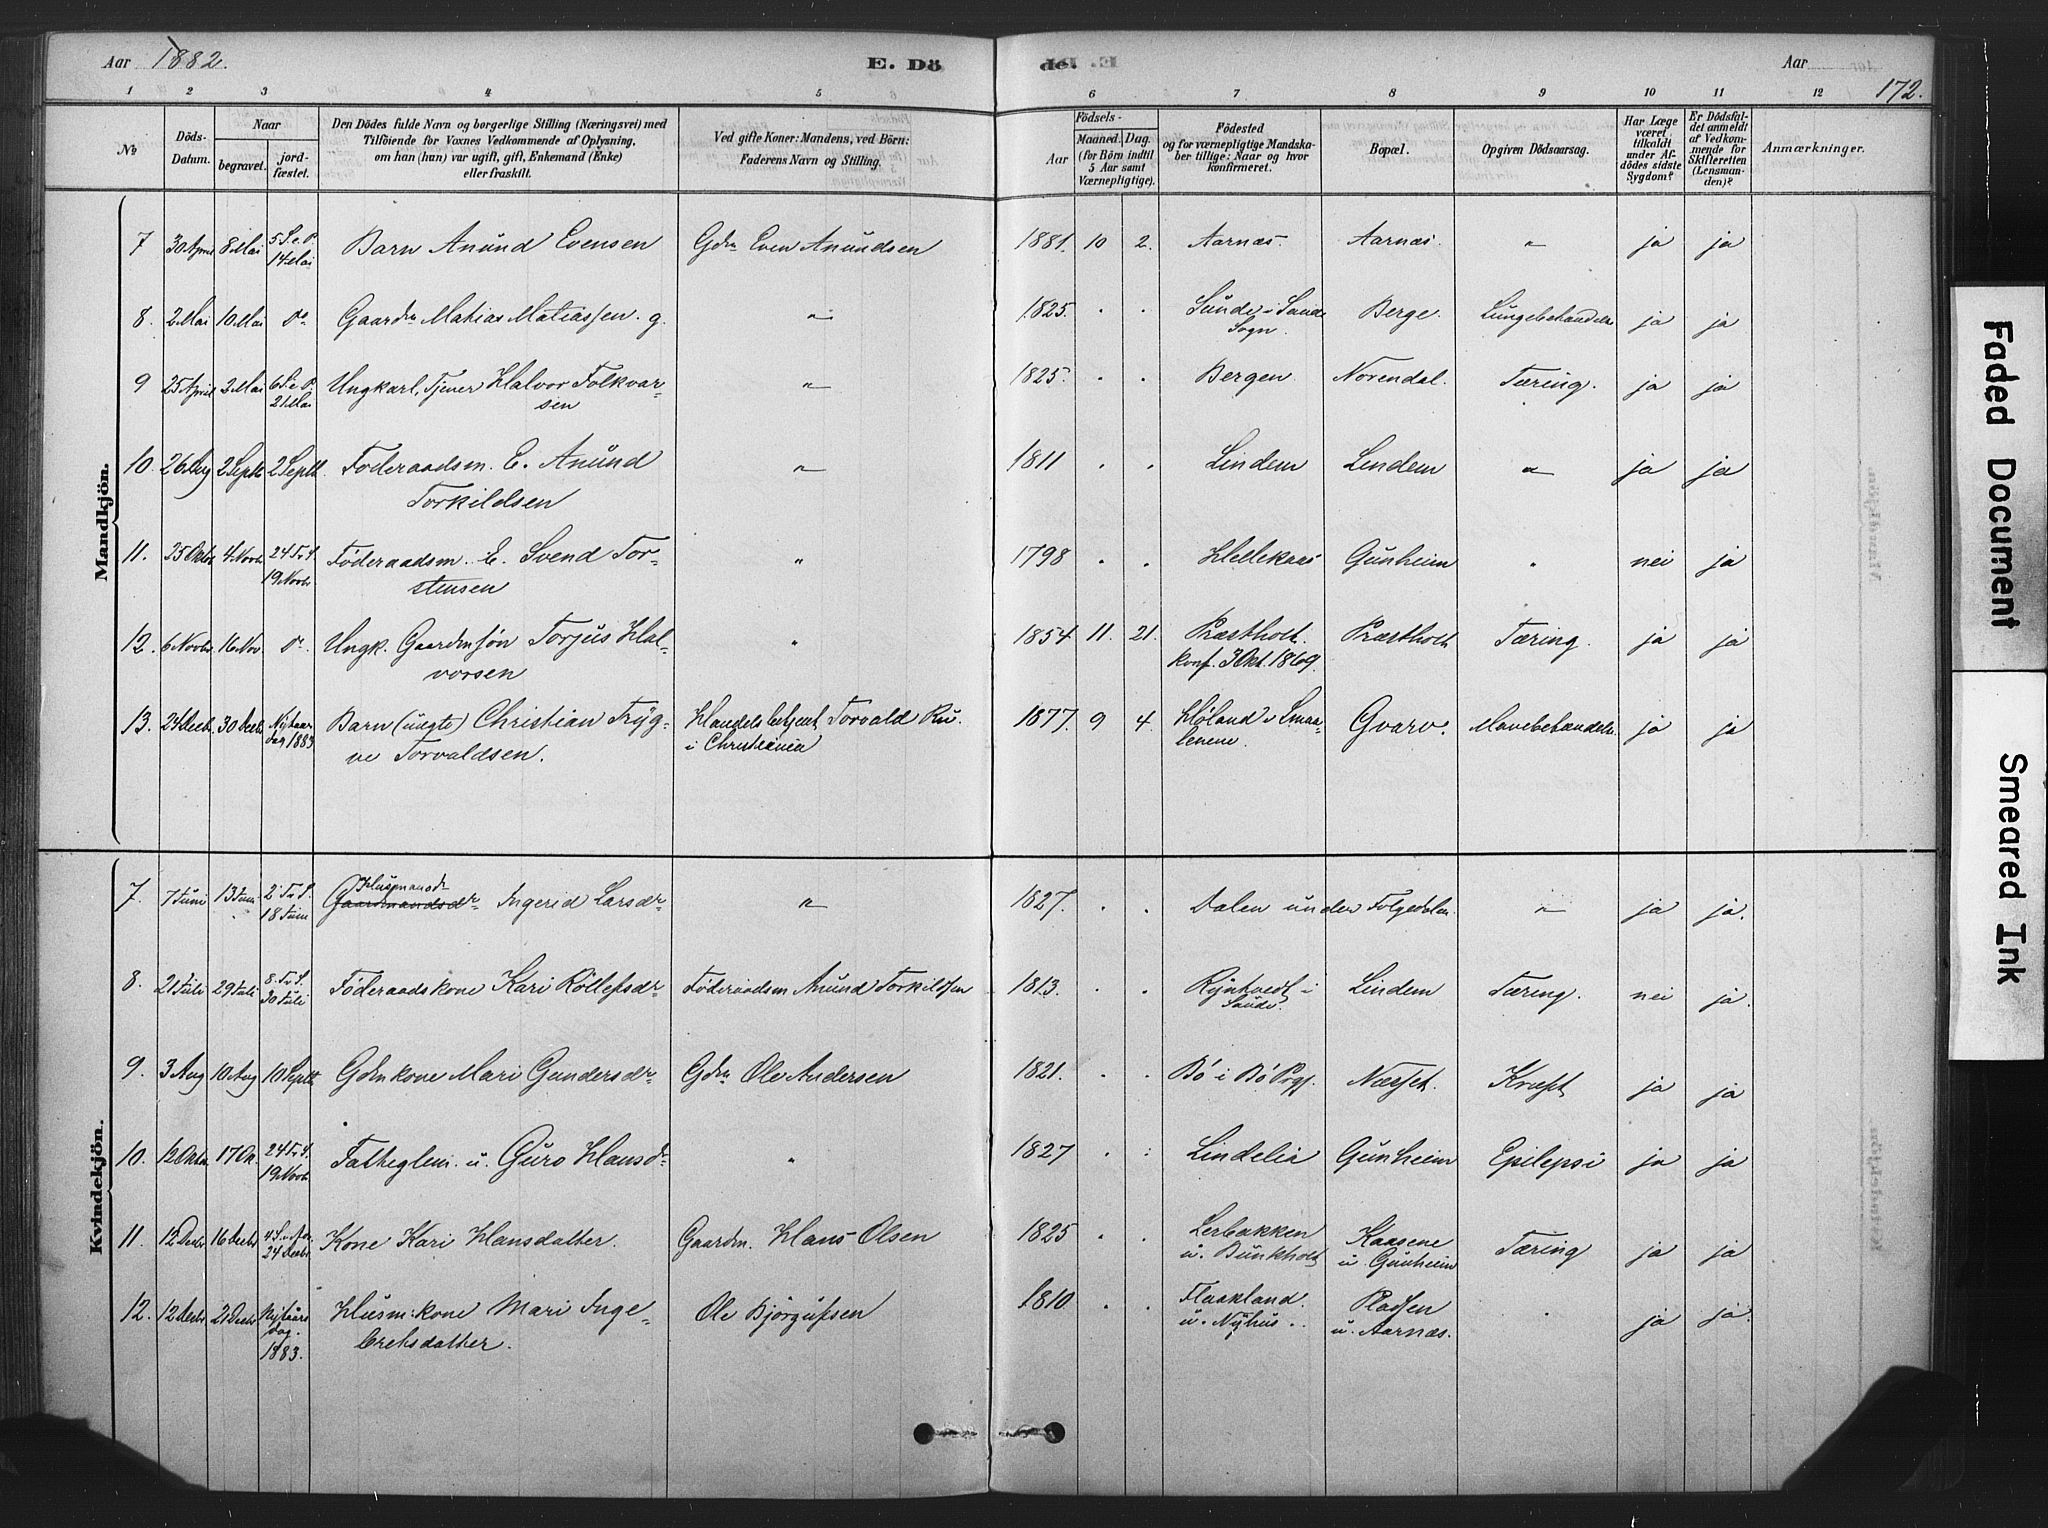 Aar 1882. E. Dö de. Aar 172.
1 2 3 4 5 6 7 8 9 10 11 12
No Döds-Datum. Naar begravet. jordfæstet. Den Dödes fulde Navn og borgerlige Stilling (Næringsvei) med Tilföiende for Voxnes Vedkommende af Oplysning, om han (hun) var ugift, gift, Enkemand (Enke) eller fraskilt. Ved gifte Koner: Mandens, ved Börn: Faderens Navn og Stilling. Födsels- Aar Maaned. Dag. (for Börn indtil 5 Aar samt Værnepligtige). Födested og for værnepligtige Mandskaber tillige: Naar og hvor Konfirmeret. Bopæl. Opgiven Dödsaarsag. Har Læge været tilkaldt under Afdödes sidste Sygdom? Er Dödsfaldet anmeldt af Vedkommende for Skifteretten (Lensmanden)? Anmærkninger.
Mandkjön.
7 30 April 8 Mai 5 S. e. P. 14 Mai Barn Anund Evensen Gdm Even Anundsen 1881. 10 2. Aarnæs. Aarnæs. " ja ja
8. 2 Mai 10 Mai do Gaardm Matias Matiassen. g. " 1825. . . Sunde i Saude Sogn Berge. Lungebetændelse ja ja
9 25 April 3 Mai 6 S. e. P. 21 Mai Ungkarl, Tjener Halvor Folkvarsen " 1825. . . Bergen Norendal. Tæring. ja ja
10. 26 Aug 2 Septb 2 Septb. Föderaadsm. E. Anund Torkildsen " 1811 . . Lindem Lindem " ja ja
11. 25 Oktb 4 Novbr 24 Tr. S. 19 Novbr Föderaadsm. E. Svend Torstensen " 1798 . . Gunheim " nei ja
12. 6 Novbr 16 Nov. do Ungk. Gaardmsön Torjus Halvorsen " 1854. 11. 21. Præstholt. konf. 3 Okt. 1869. Præstholt Tæring. ja ja
13. 24 Decb. 30 Decb. Nytaarsdag 1883 Barn (uegte) Christian Trygve Torvaldsen. Handelsbetjent Torvald Ru. i Christiania 1877. 9 4. Höland i Smaalenene. Gvarv. Mavebetændelse. ja ja
Kvindekjön.
7. 7 Juni 13 Juni 2 Tr. S. 18 Juni Husmandsdr Gaardmandsdr. Ingerid Larsdr " 1827. . . Dalen under Folgedalen " ja ja.
8. 21 Juli 29 Juli 8. Tr. S. 30 Juli Föderaadskone Kari Rollefsdr Föderaadsm Anund Torkildsen 1813. . . i Saude. Lindem Tæring. nei ja.
9. 3 Aug 10 Aug 10 Septb. Gdmkone Mari Gundersdr Gdm Ole Andersen 1821. . . Bö i Bö Prgj. Næsset. Kræft ja ja
10. 12 Oktb. 17 Ok. 24 Tr. S. 19 Novb. Fattiglem. u. Guro Hansdr " 1827 . : Lindelia Gunheim Epilepsi ja ja
11. 12 Decbr 16 Decbr 4 S. i Adv. 24 Decbr Kone Kari Hansdatter. Gaardm. Hans Olsen 1825 . . Lerbakken u. Bunkholt Kaasene u Gunheim Tæring ja ja
12. 12 Decbr 21 Decbr Nytaarsdag. 1883. Husm:kone Mari Ingebrektsdatter. Ole Bjørgufsen 1810 . . Flaakland u. Nyhus. Pladsen u. Aarnæs. " ja ja.
Faded Document
Smeared Ink